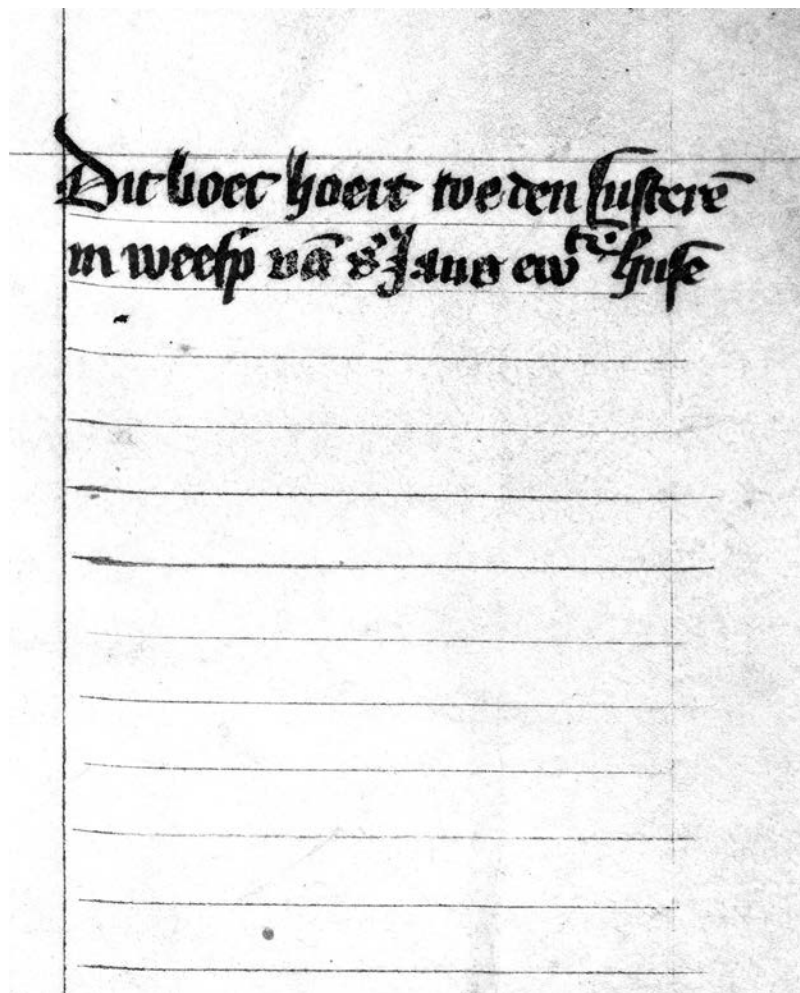 Dit boec hoert toe den susterē
in weesp vā s Jans ew husē